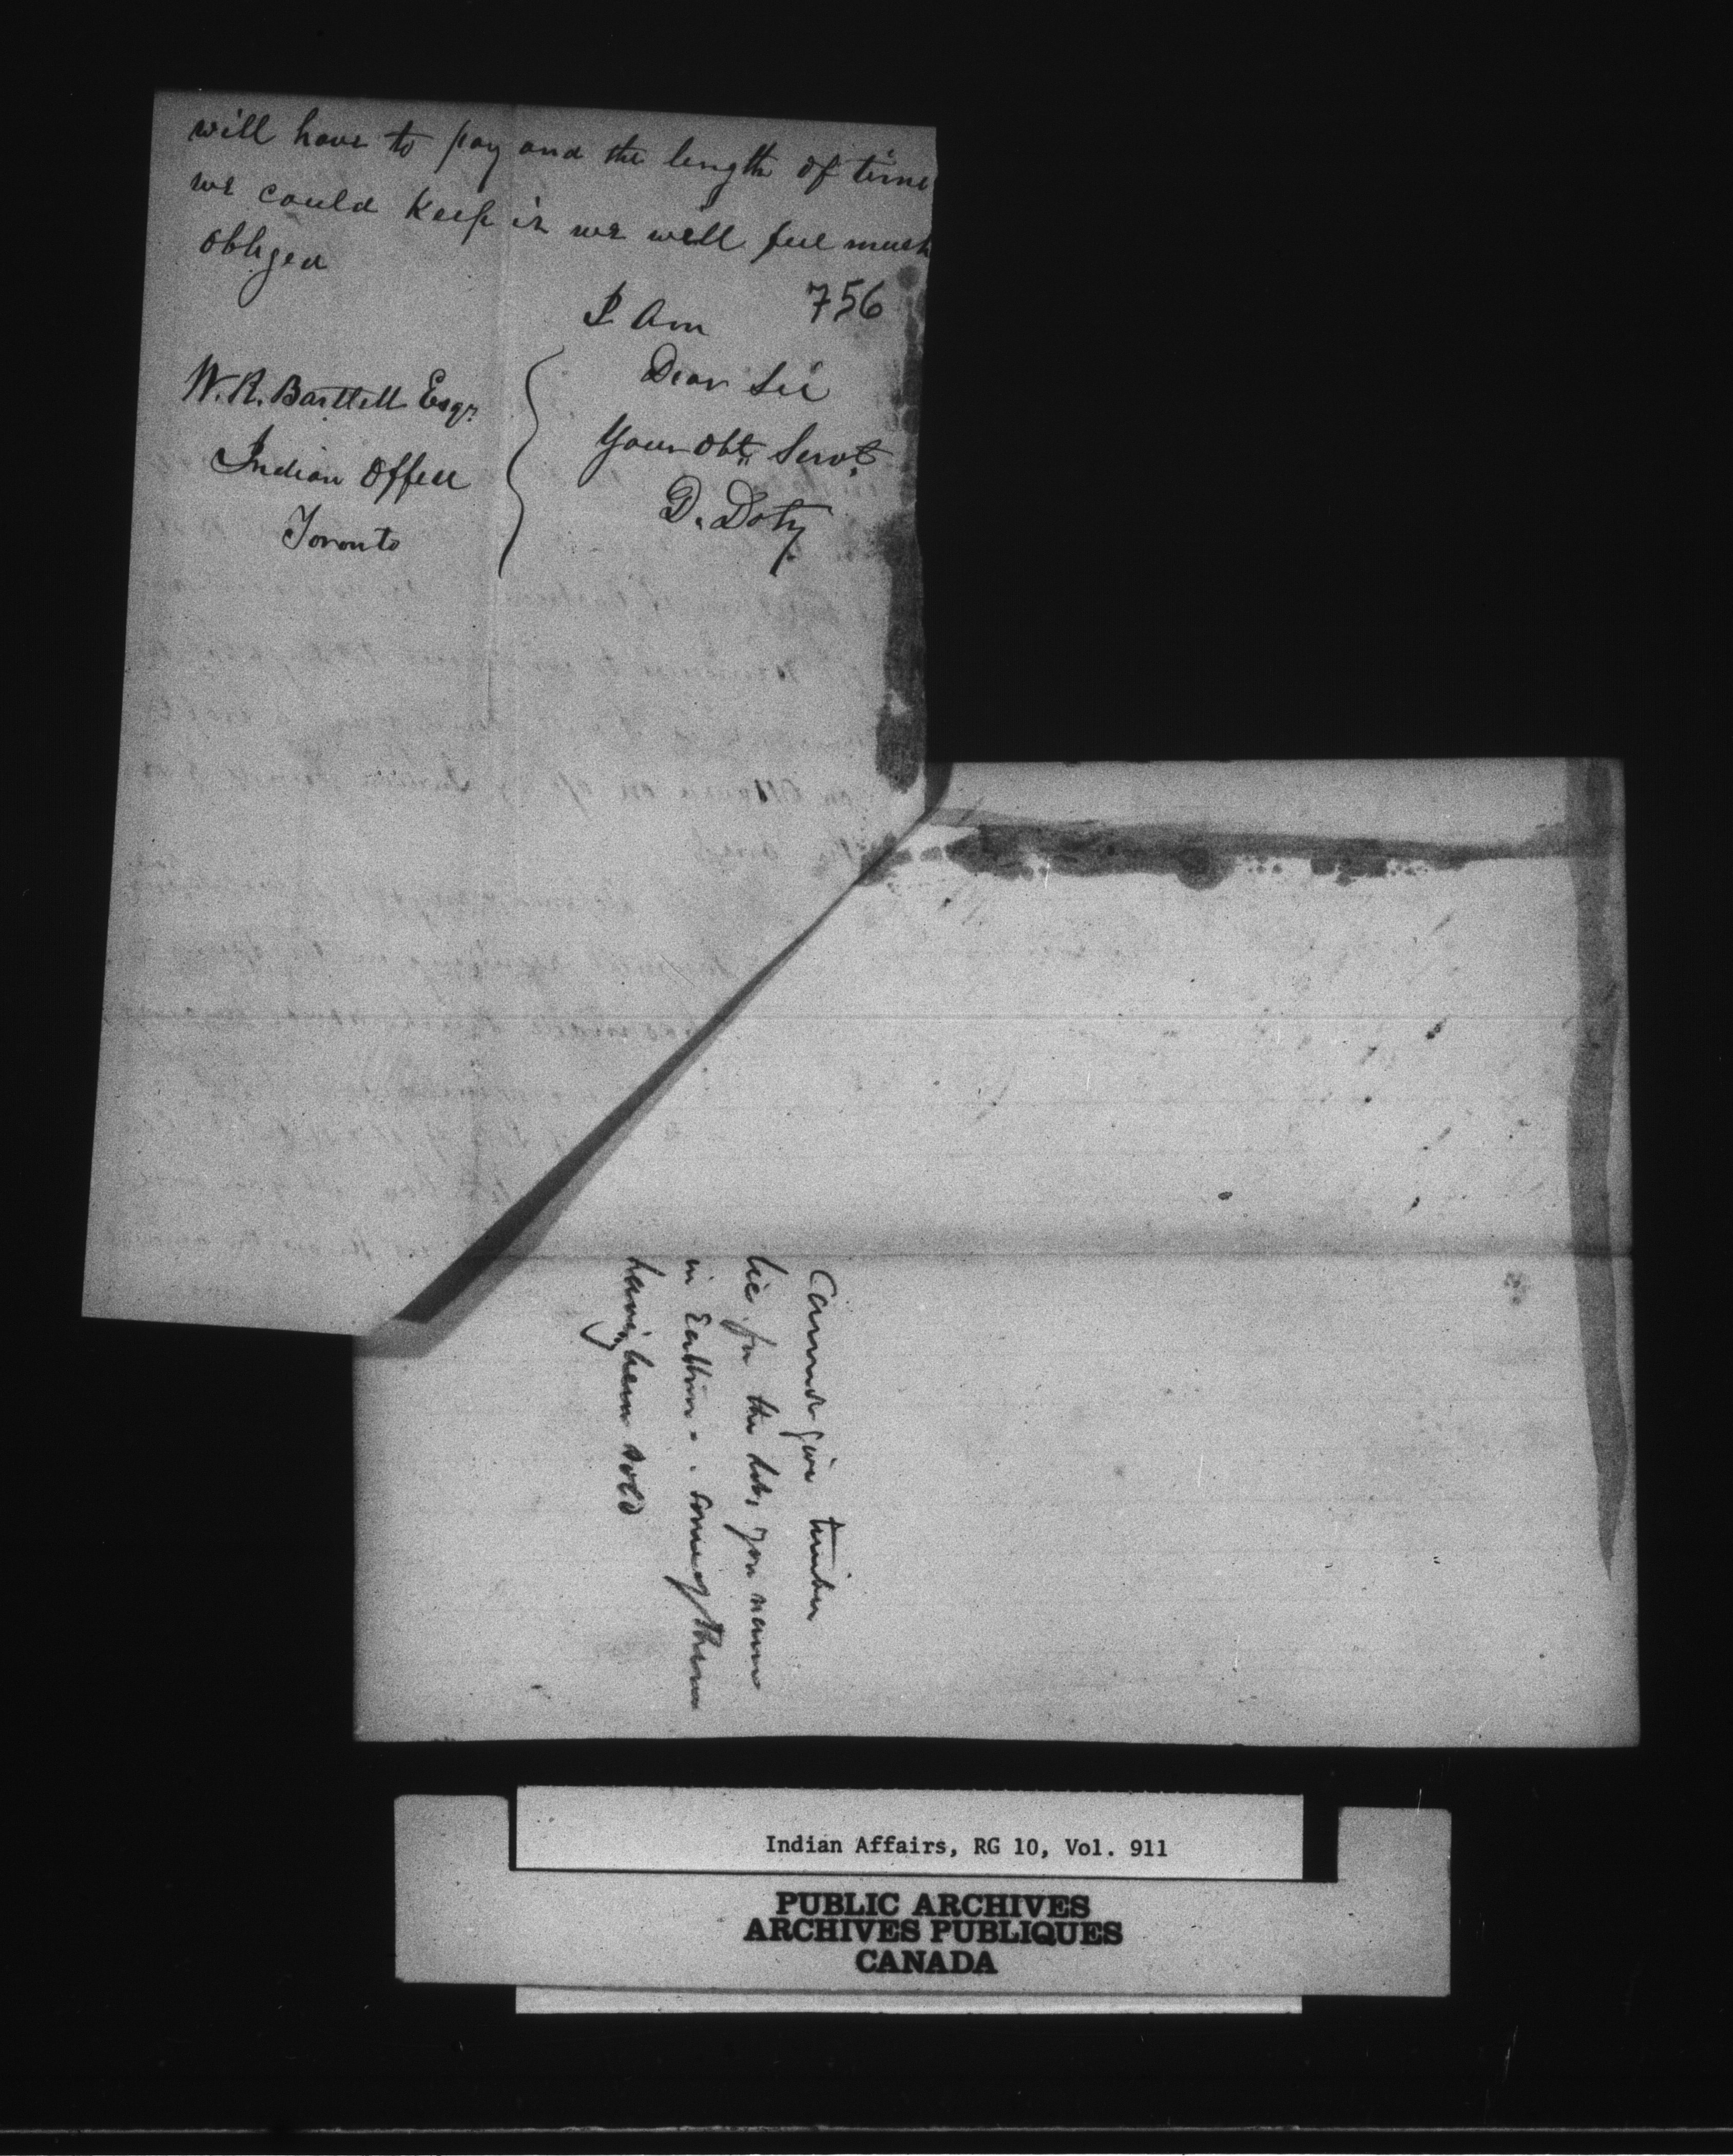 will have to pay and the length of time
we could keep it we will feel much
obliged
756
I Am
Dear Sir
Your Obt Servt
D. Doty
W. R. Bartlett Esqr
Indian Office
Toronto
Cannot give timber
lic for the lots you name
in Eastnor - some of them
having been sold
Indian Affairs, RG 10, Vol. 911
PUBLIC ARCHIVES
ARCHIVES PUBLIQUES
CANADA